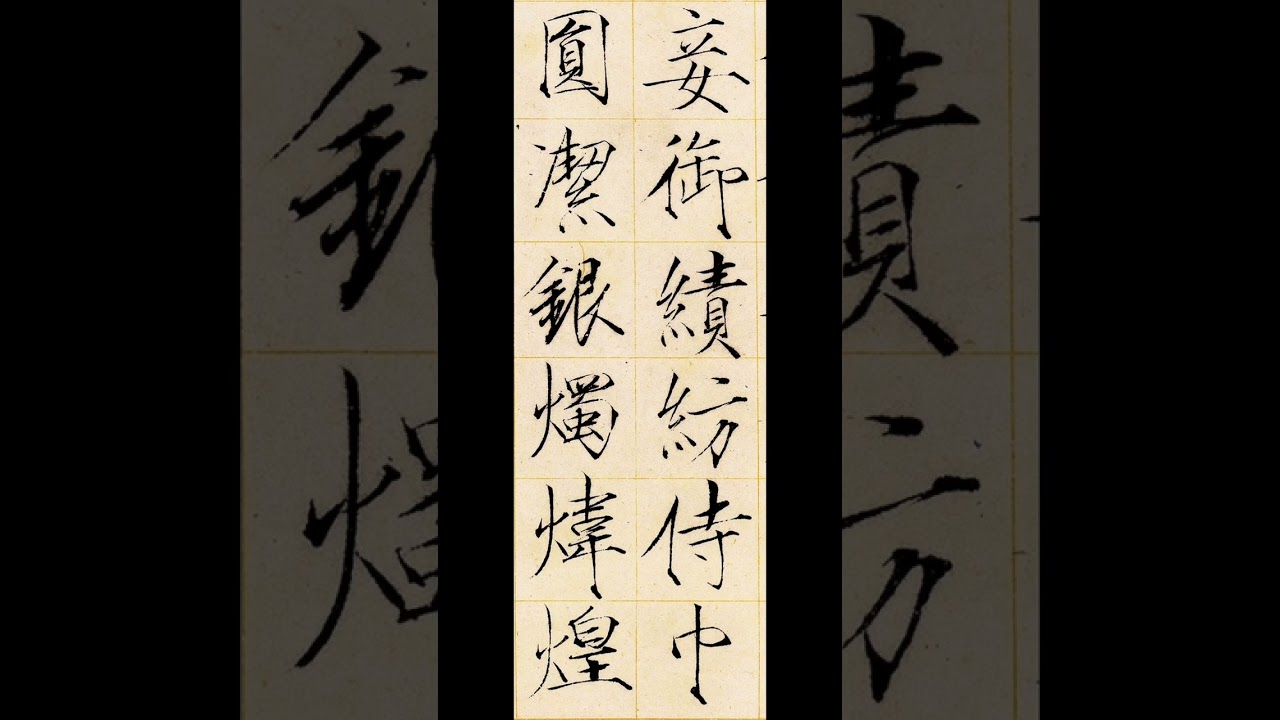 妾御績紡侍巾
圓潔銀燭煒煌